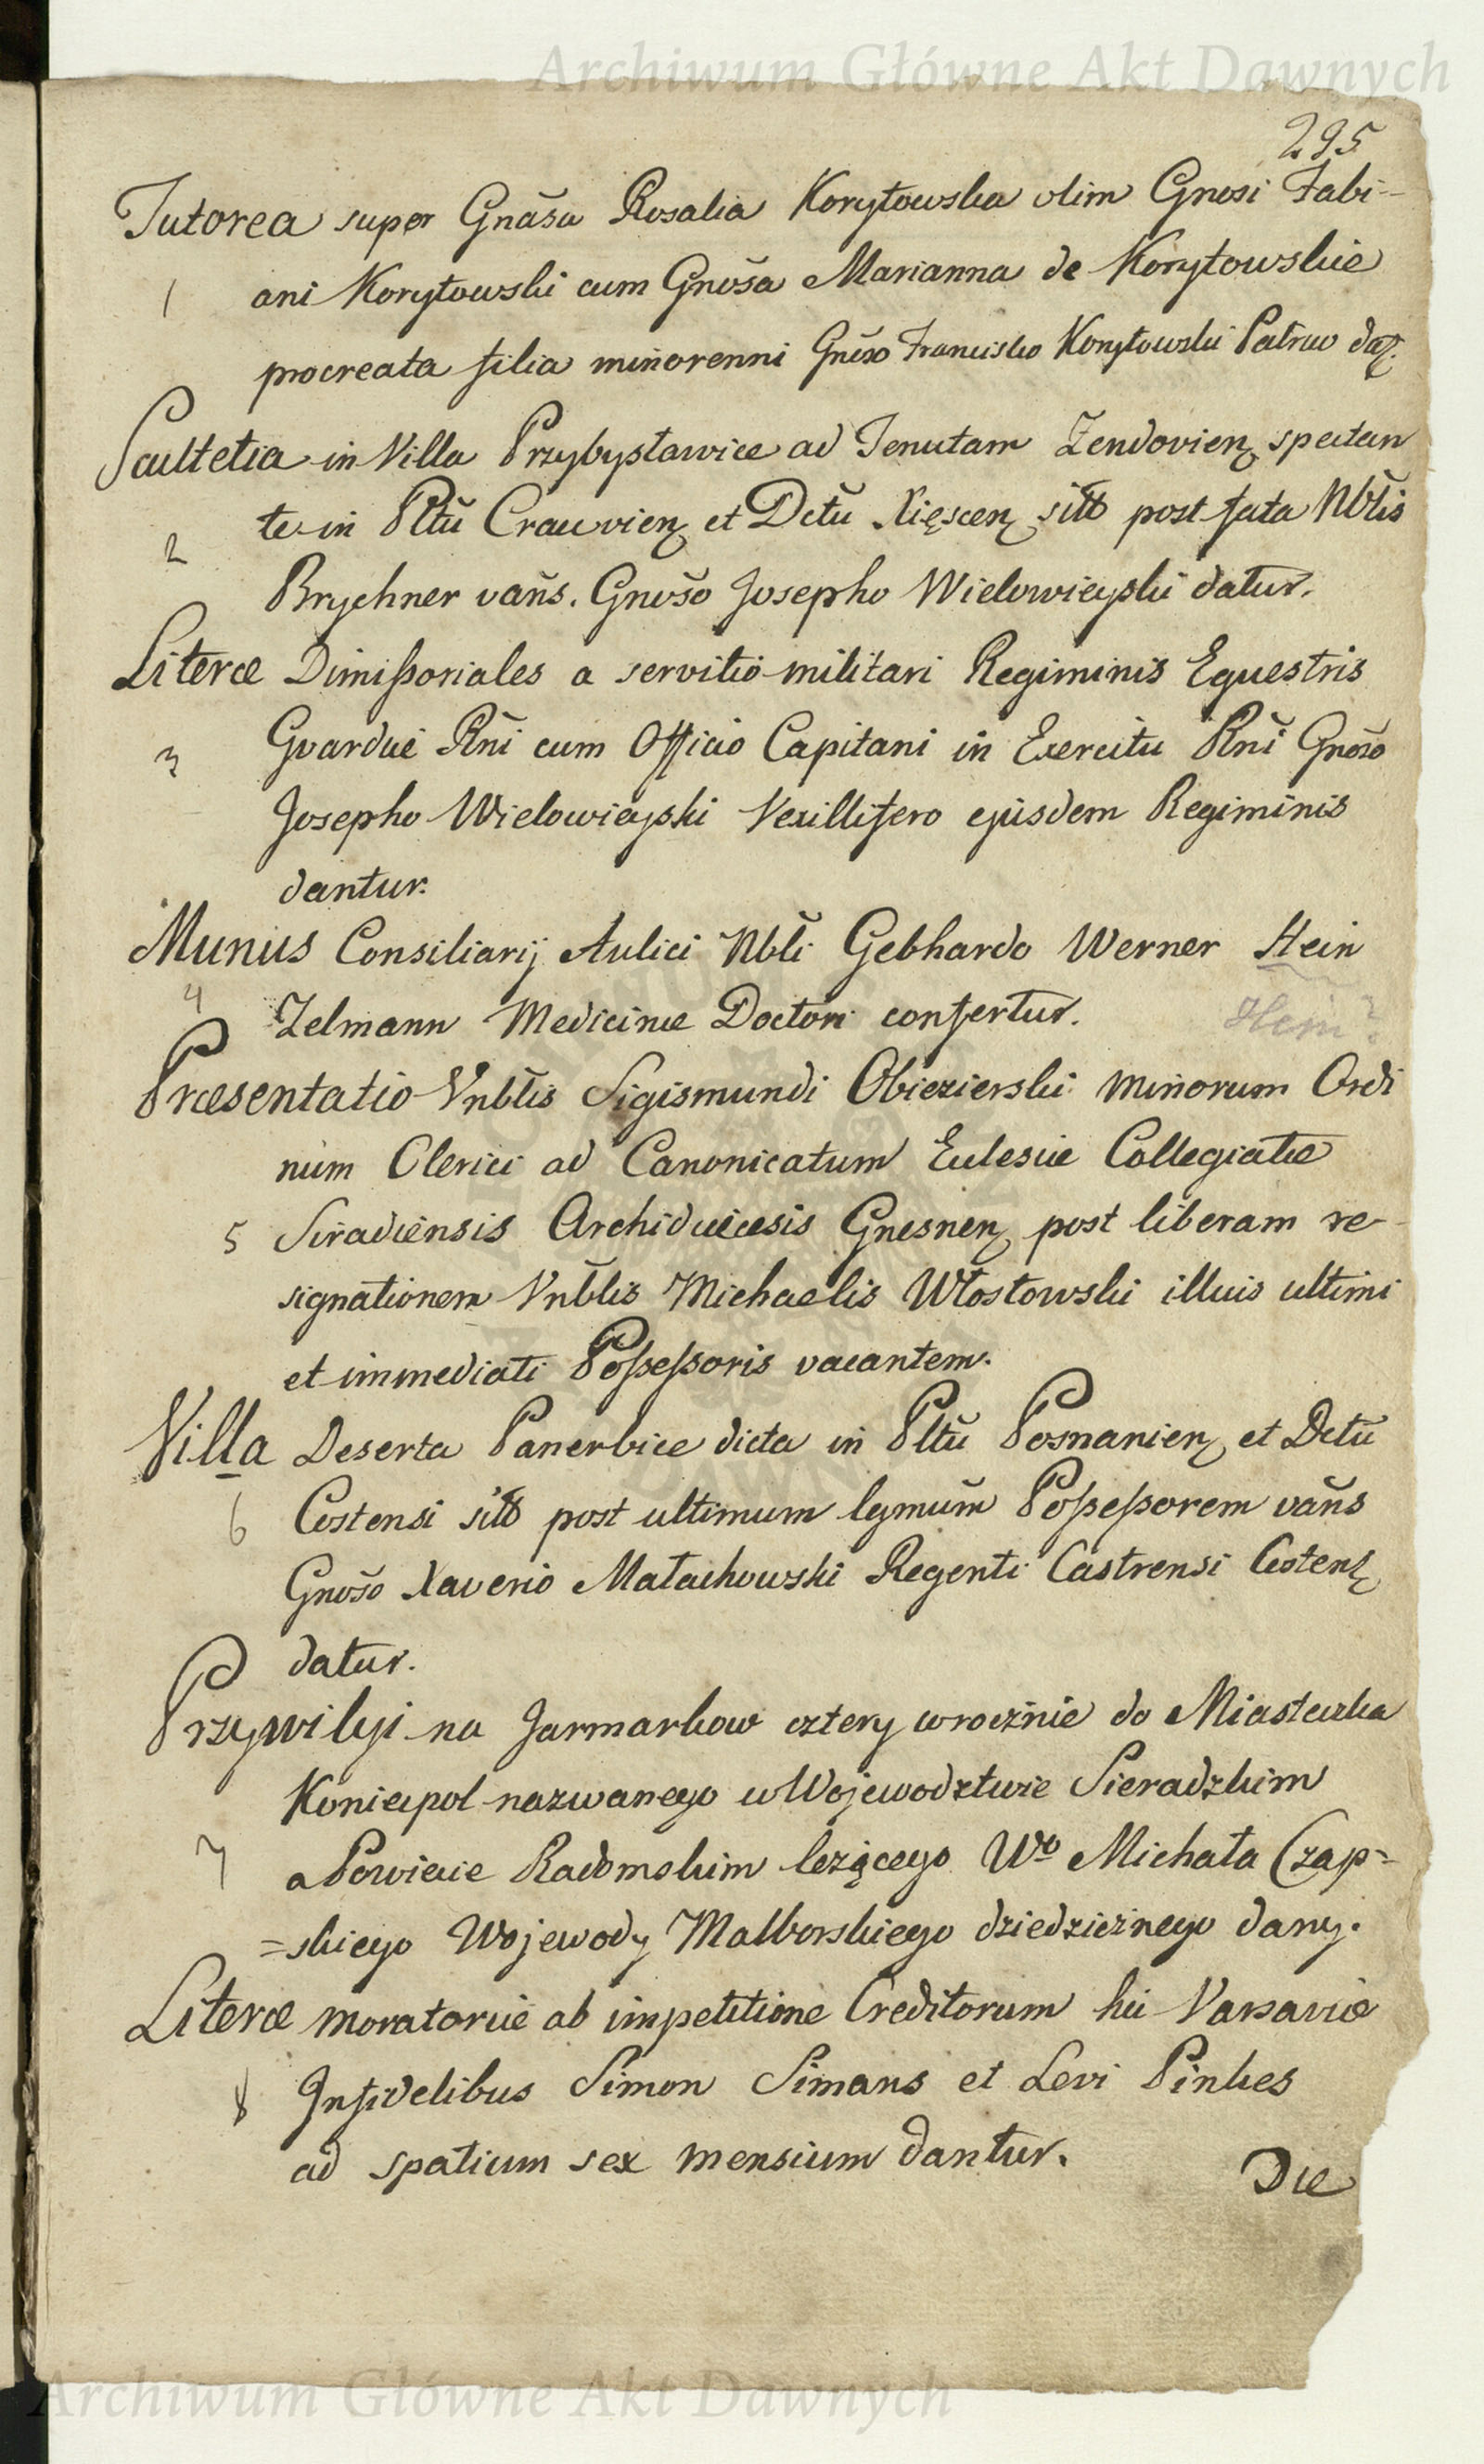 Archiwum Główne Akt Dawnych
295
Tutorea super Gnãsa Rosalia Korytowska olim Gnosi Fabi-
1 ani Korytowski cum Gnõsa Marianna de Korytowskie
procreata filia minorenni Gnõso Francisko Korytowski Patruo daꝫ.
Scultetia in Villa Przybysławice ad Tenutam Zendovienꝫ spectan
2 te in Pltũ Cracvienꝫ et Dctũ Xięscenꝫ sitt post fata Nblĩs
Brychner vañs. Gnõso Josepho Wielowieyski datur.
Literæ Dimissoriales a servitio militari Regiminis Equestris
3 Gvardiæ Rñi cum Officio Capitani in Exercitu Rñi Gnõso
Josepho Wielowieyski Vexillifero ejusdem Regiminis
dantur.
Munus Consiliarij Aulici Nblĩ Gebhardo Werner Hein
4 Zelmann Medicinæ Doctori confertur. Hein?
Præsentatio Vnblĩs Sigismundi Obiezierski minorum Ordi
num Clerici ad Canonicatum Eclesiæ Collegiatæ
5 Siradiensis Archidiæcesis Gnesnenꝫ post liberam re-
signationem Vnblĩs Michaelis Włostowski illius ultimi
et immediati Possessoris vacantem.
Villa Deserta Panerbice dicta in Pltũ Posnanienꝫ et Dctũ
6 Costensi sitt post ultimum lgmũm Possessorem vañs
Gnõso Xaverio Małachowski Regenti Castrensi Costenꝫ
datur.
Przywileji na Jarmarkow cztery wrocznie do Miasteczka
Koniecpol nazwanego w Wojewodztwie Sieradzkim
7 a Powiecie Radomskim leżącego Wo Michała Czap-
=skiego Wojewody Malborskiego dziedzicznego dany.
Literæ moratoriæ ab impetitione Creditorum hic Varsaviæ
8 Infidelibus Simon Simans et Levi Pinkes
ad spatium sex mensium dantur.
Die
Archiwum Główne Akt Dawnych